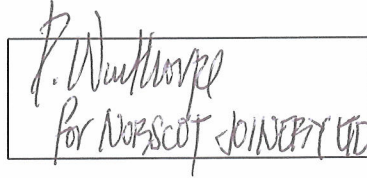 P. Winthorpe
for NOBSCOT JOINERY LTD